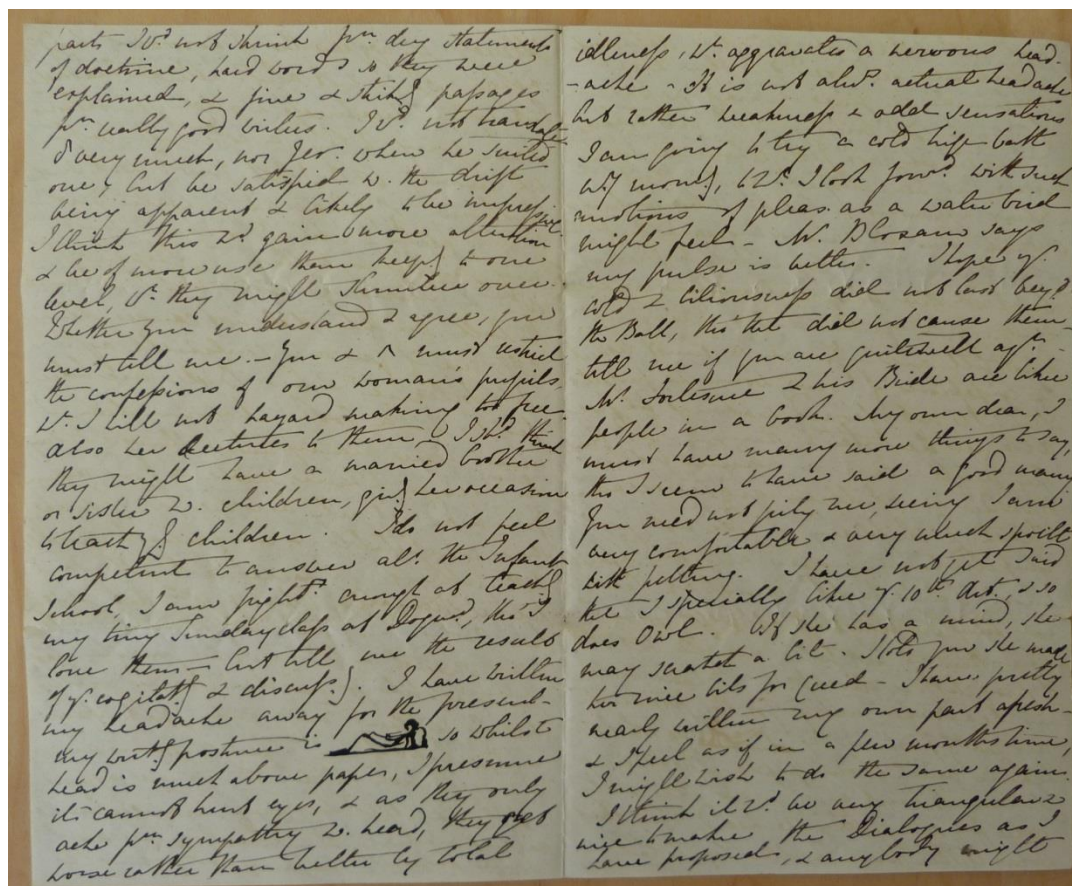 parts I wd. not shrink fm. dry statements
of doctrine, hard words so they were
explained, & fine & strikg passages
fm. really good writers. I wd. not translate
every much, nor Jer. when he suited
one, but be satisfied w. the drift
being apparent & likely to be impressive.
I think this wd. gain more attention
& be of more use than keepg to one
level, wh. they might slumber over.
Whether you understand & agree, you
must tell me. - You & A must restrict
the confessions of our woman's pupils,
wh. I will not hazard making too free
also her lectures to them, & I shd. think
they might have a married brother
or sister w. children, givg her occasion
to teachg children. I do not feel
competent to answer abt. the Infant
School, I am fright. enough at teachg
my tiny Sunday class at Dogmd., tho' I
love them - but tell me the result
of yr. cogitatg & discussg. I have written
my headache away for the present -
my writg posture is so whilst
head is much above paper, I presume
it cannot hurt eyes, & as they only
ache fm. sympathy w. head, they get
worse rather than better by total
idleness, wh. aggravates a nervous head-
-ache - It is not alws. actual headache
but rather weakness & odd sensations
I am going to try a cold hip bath
morng, to wh. I look forwd. with such
emotions of pleas. as a water bird
might feel - Mr. Bloxam says
my pulse is better. I hope yr.
cold & biliousness did not last beyd.
the Ball, tho' that did not cause them -
tell me if you are quite well agn. -
Mr. Fortescue & his Bride are like
people in a book. My own dear, I
must have many more things to say,
tho' I seem to have said a good many
You need not pity me, seeing I am
very comfortable & very much spoilt
with petting. I have not yet said
that I specially like yr. 10th Art., & so
does Owl. If she has a mind, she
may scratch a bit. I told you she made
two nice bits for Creed - I have pretty
nearly written my own part afresh -
& I feel as if in a few months time,
I might wish to do the same again.
I think it wd. be very triangular &
nice to make the Dialogues as I
have proposed, & anybody might